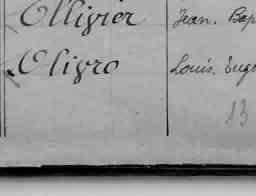 Ollivier Jean. Bap
Oligro Louis. Euge
13